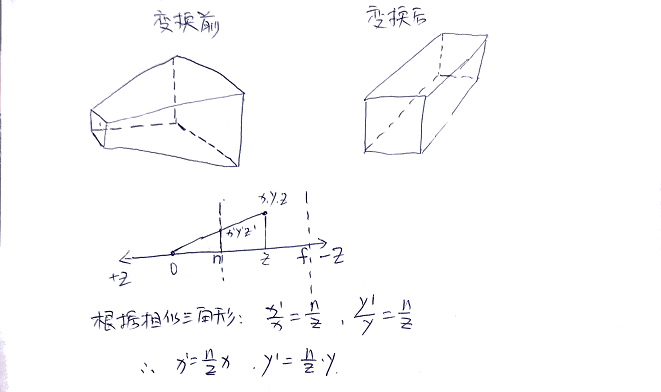 变换前 变换后
x.y.z
x'y'z'
+z 0 n z f -z
根据相似三角形: x'/x = n/z , y'/y = n/z
∴ x' = n/z x . y' = n/z · y.